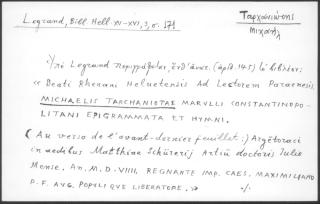 Legrand, Bibl. Hell. XV-XVI, 3, σ. 171
Ταρχανιώτης
Μιχαήλ
Ὑπὸ Legrand περιγράφεται, ἐνθ' ἀνωτ. (ἀριθ. 145) τὸ βιβλίον:
« Beati Rhenani Helvetensis Ad Lectorem Paraenesis.
MICHAELIS TARCHANIOTAE MARULLI CONSTANTINOPO-
LITANI EPIGRAMMATA ET HYMNI.
(Au verso de l'avant-dernier feuillet:) Argētoraci
in aedibus Matthiae Schürerij Artiū doctoris Iulio
Mense. An. M. D. VIIII. REGNANTE IMP. CAES. MAXIMILIANO
P. F. AVG. POPULIQUE LIBERATORE. »